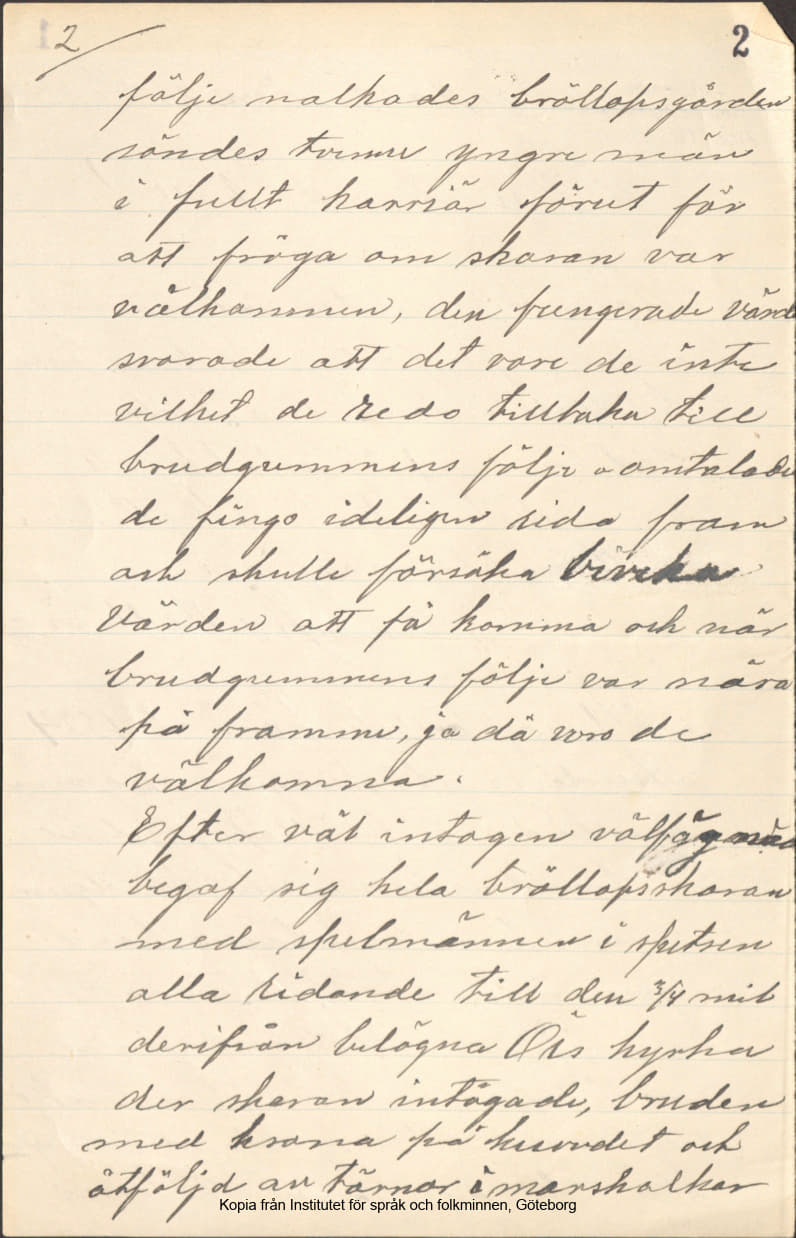 2/ 2
följe nalkades bröllopsgården
sändes tvenne yngre män
i fullt karriär förut för
att fråga om skaran var
välkommen, den fungerade värd
svarade att det vore de inte
vilket de redo tillbaka till
brudgummens följe o omtalade
de fingo ideligen rida fram
och skulle försöka beveka
Värden att få komma och när
brudgummens följe var nära
på framme, ja då voro de
välkomna.
Efter väl intagen välfägnad
begaf sig hela bröllopsskaran
med spelmännen i spetsen
alla ridande till den 3/4 mil
derifrån belägna Ös kyrka
der skaran intågade, bruden
med krona på huvudet och
åtföljd av tärnor i marskalkar
Kopia från Institutet för språk och folkminnen, Göteborg